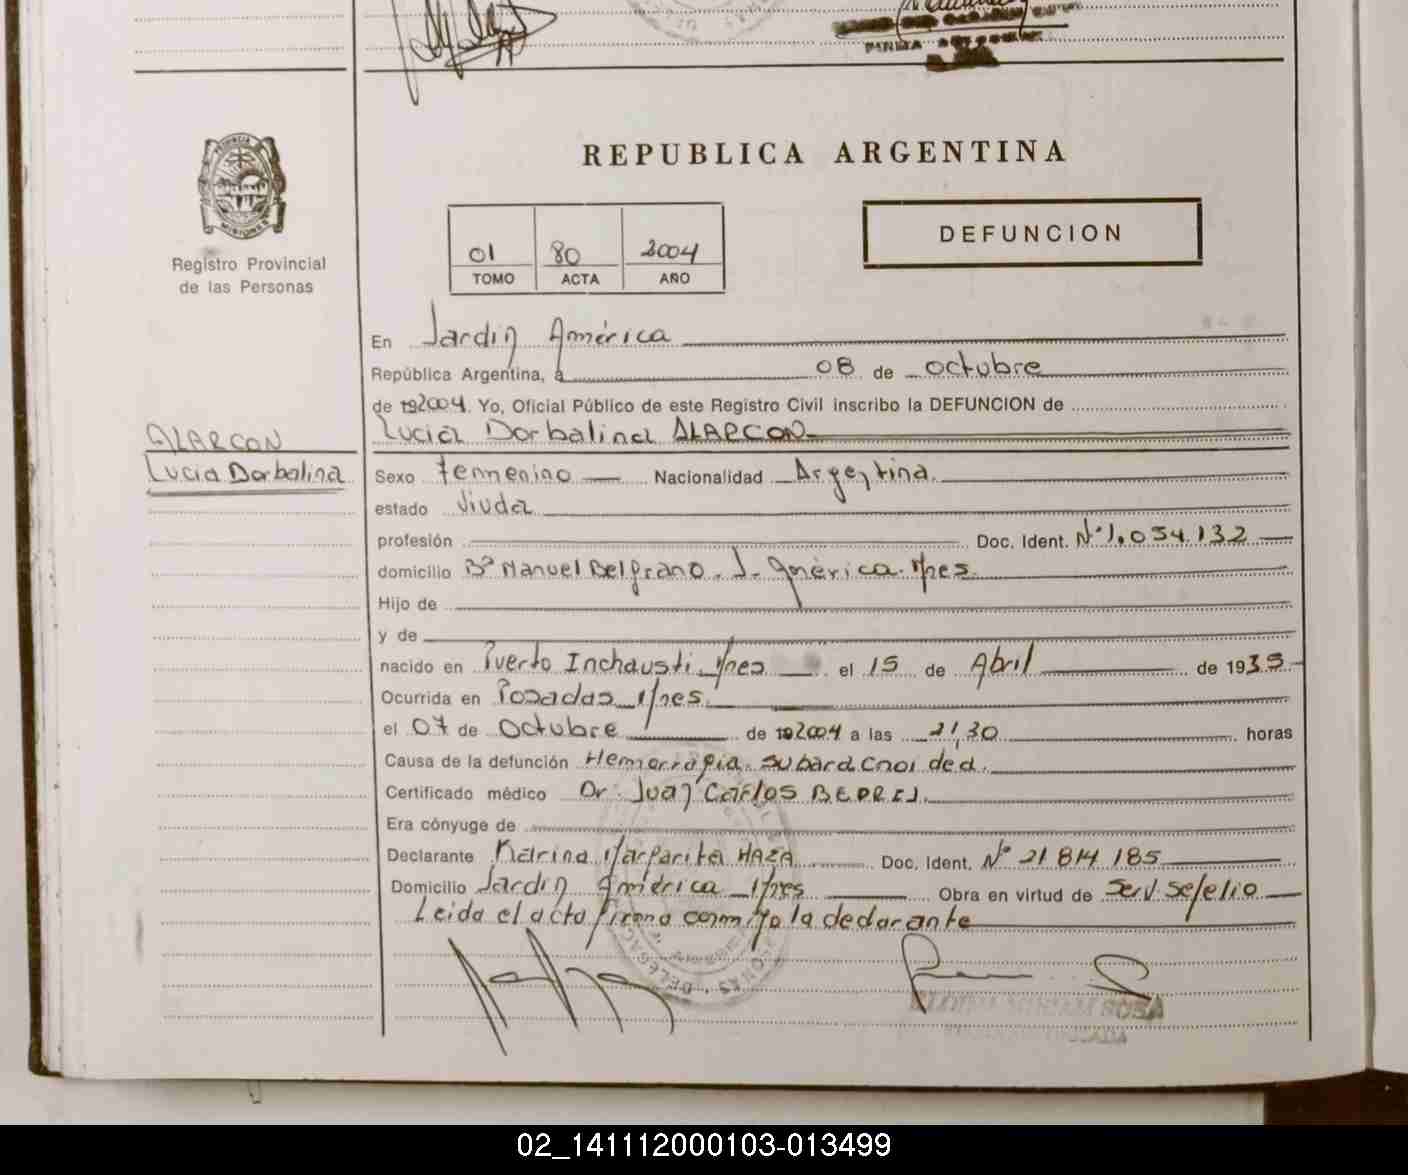 REPUBLICA ARGENTINA
DEFUNCION
01 80 2004
TOMO ACTA AÑO
Registro Provincial
de las Personas
En Jardin América
República Argentina, a 08 de octubre
de 192004. Yo, Oficial Público de este Registro Civil inscribo la DEFUNCION de
Lucia Dorbalina ALARCON
ALARCON
Lucia Dorbalina
Sexo Femenino Nacionalidad Argentina
estado Viuda
profesión Doc. Ident. Nº 1.054.132
domicilio Bº Manuel Belgrano. J. América. Mnes.
Hijo de
y de
nacido en Puerto Inchausti Mnes el 15 de Abril de 1935
Ocurrida en Posadas Mnes.
el 07 de octubre de 192004 a las 21,30 horas
Causa de la defunción Hemorragia subaracnoidea.
Certificado médico Dr. Juan Carlos
Era cónyuge de
Declarante Karina Margarita HAZA Doc. Ident. Nº 21 814 185
Domicilio Jardin América Mnes Obra en virtud de Serv. Sepelio
Leida el acta firma conmigo la declarante
02_141112000103-013499